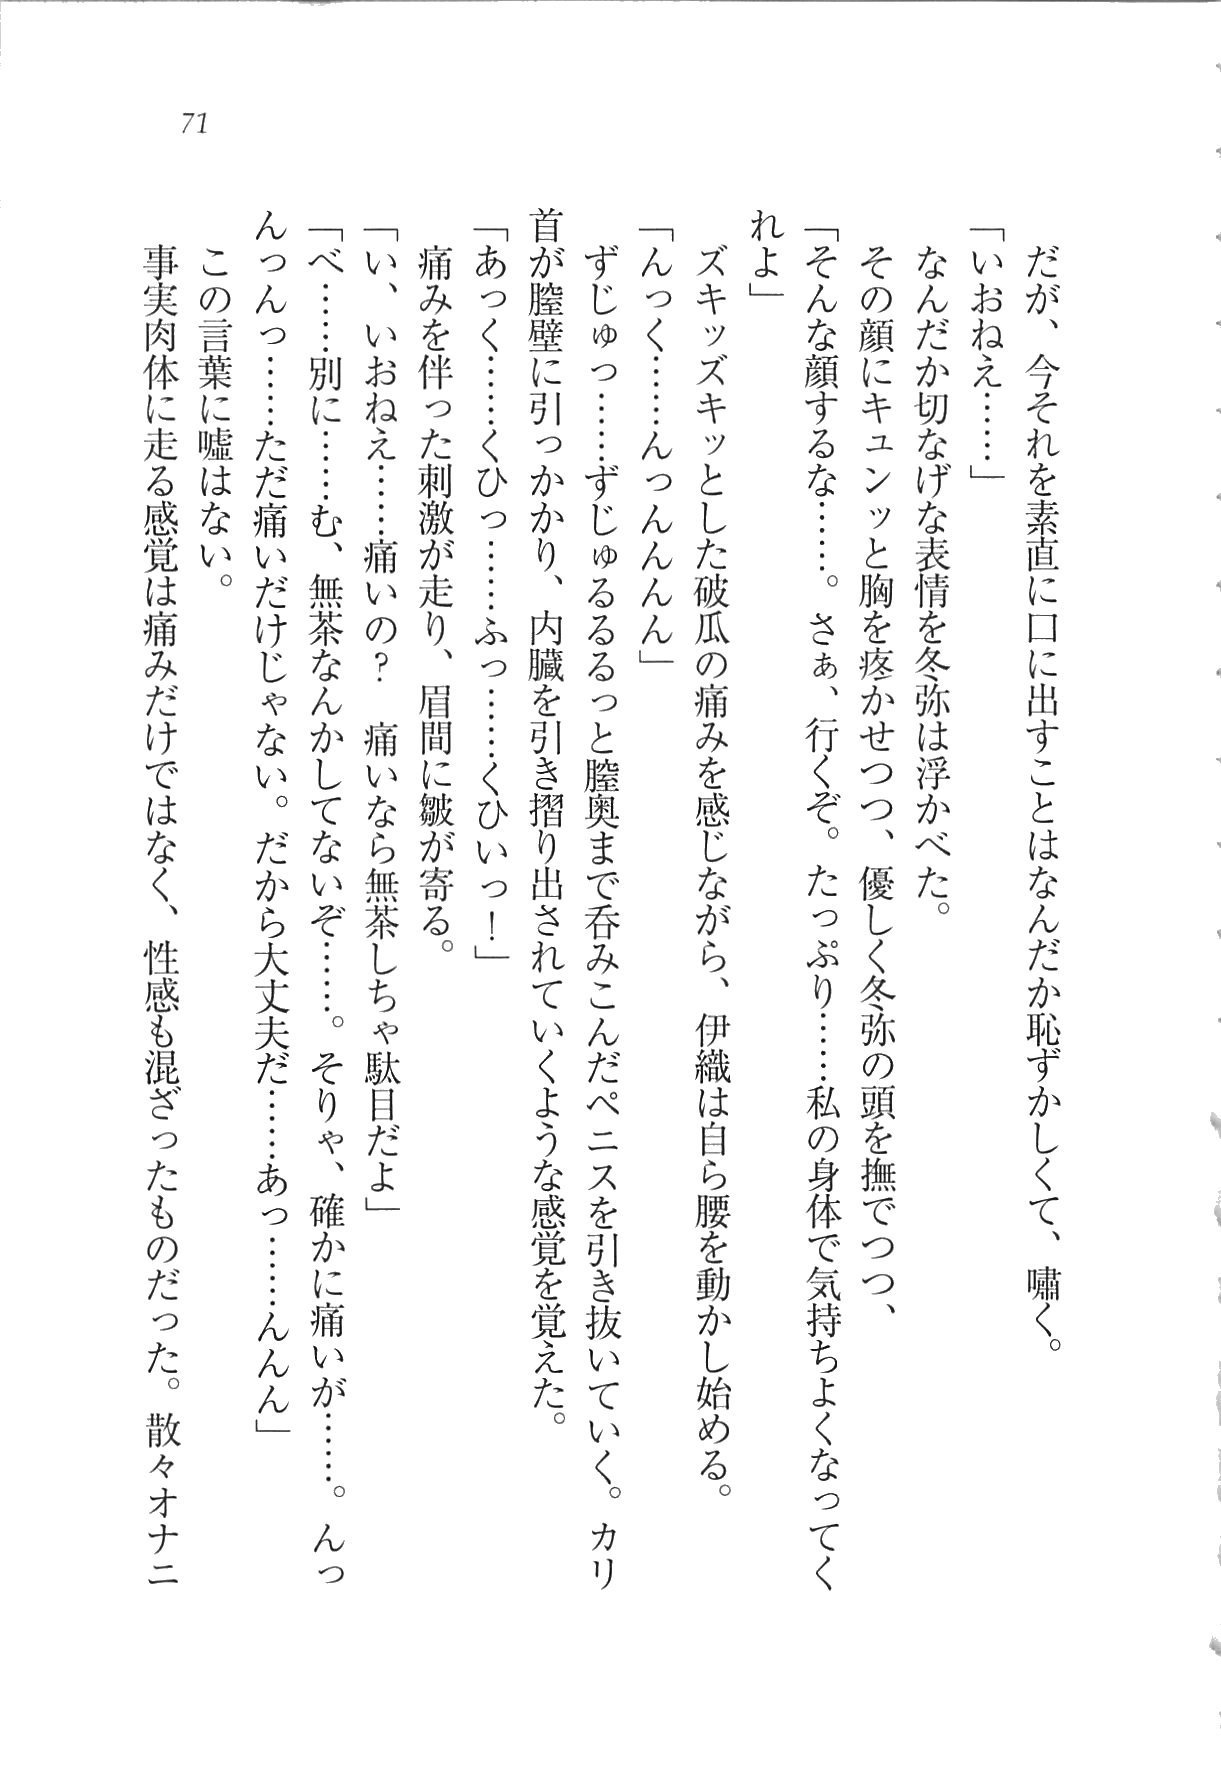 71
だが、今それを素直に口に出すことはなんだか恥ずかしくて、嘯く。
「いおねえ……」
なんだか切なげな表情を冬弥は浮かべた。
その顔にキュンッと胸を疼かせつつ、優しく冬弥の頭を撫でつつ、
「そんな顔するな……。さぁ、行くぞ。たっぷり……私の身体で気持ちよくなってく
れよ」
ズキッズキッとした破瓜の痛みを感じながら、伊織は自ら腰を動かし始める。
「んっく……んっんんんん」
ずじゅっ……ずじゅるるるっと膣奥まで呑みこんだペニスを引き抜いていく。カリ
首が膣壁に引っかかり、内臓を引き摺り出されていくような感覚を覚えた。
「あっく……くひっ……ふっ……くひいっ！」
痛みを伴った刺激が走り、眉間に皺が寄る。
「い、いおねえ……痛いの？　痛いなら無茶しちゃ駄目だよ」
「べ……別に……む、無茶なんかしてないぞ……。そりゃ、確かに痛いが……。んっ
んっんっ……ただ痛いだけじゃない。だから大丈夫だ……あっ……んんん」
この言葉に嘘はない。
事実肉体に走る感覚は痛みだけではなく、性感も混ざったものだった。散々オナニ